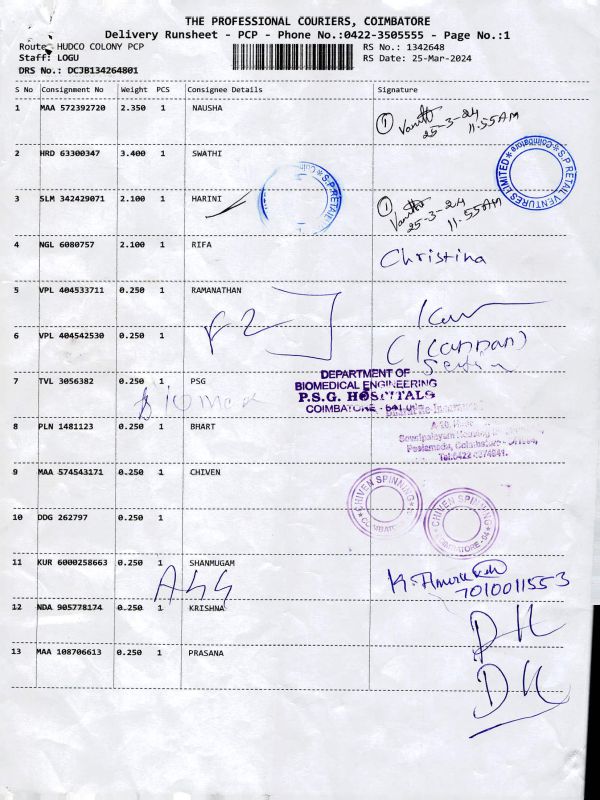 THE PROFESSIONAL COURIERS, COIMBATORE
Delivery Runsheet - PCP - Phone No.:0422-3505555 - Page No.:1
Route: HUDCO COLONY PCP
RS No.: 1342648
Staff: LOGU
RS Date: 25-Mar-2024
DRS No.: DCJB134264801
S No Consignment No Weight PCS Consignee Details Signature
1 MAA 572392720 2.350 1 NAUSHA
25-3-24
11.55AM
2 HRD 63300347 3.400 1 SWATHI
S.P RETAIL VENTURES LIMITED Coimbatore
3 SLM 342429071 2.100 1 HARINI
S.P RETAIL
25-3-24
11.55AM
4 NGL 6080757 2.100 1 RIFA
Christina
5 VPL 404533711 0.250 1 RAMANATHAN
6 VPL 404542530 0.250 1
(Kannan)
7 TVL 3056382 0.250 1 PSG
DEPARTMENT OF
BIOMEDICAL ENGINEERING
P.S.G. HOSPITALS
COIMBATORE
8 PLN 1481123 0.250 1 BHART
9 MAA 574543171 0.250 1 CHIVEN
CHIVEN SPINNING
CHIVEN SPINNING
10 DDG 262797 0.250 1
11 KUR 6000258663 0.250 1 SHANMUGAM
7010011553
12 NDA 905778174 0.250 1 KRISHNA
13 MAA 108706613 0.250 1 PRASANA